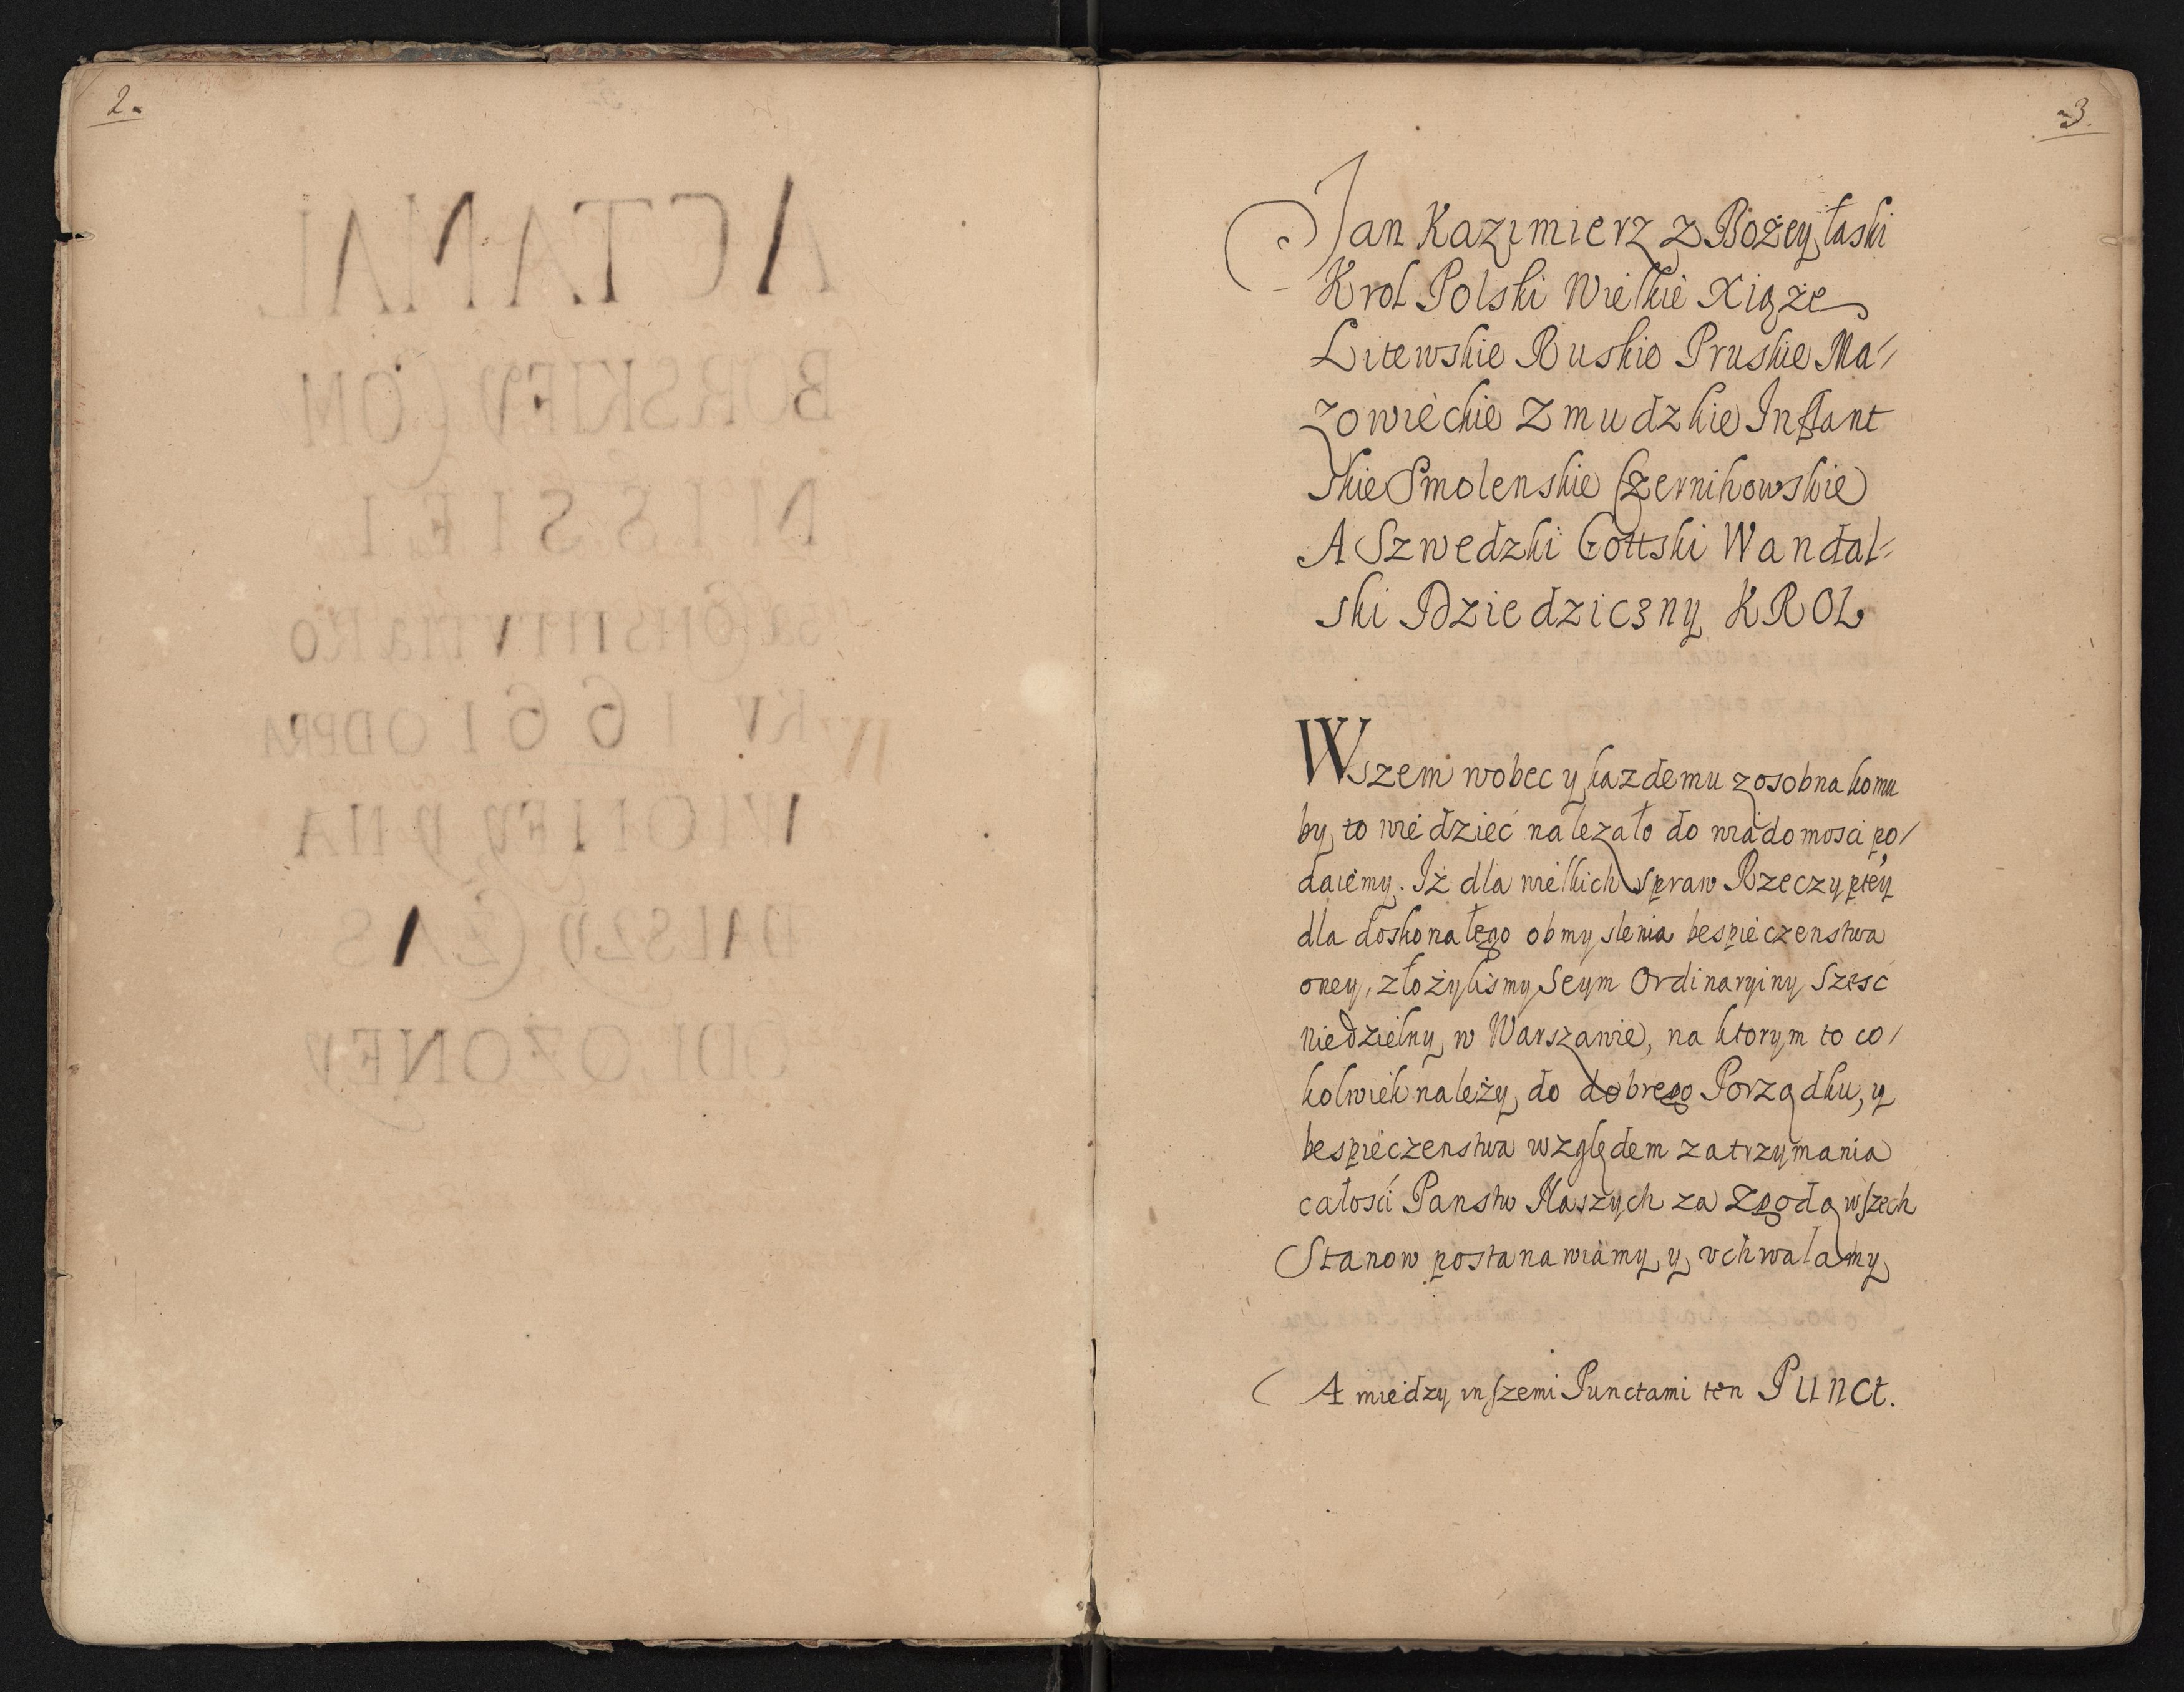 2.
3.
Jan Kazimierz z Bożey łaski
Krol Polski Wielkie Xiąże
Litewskie Ruskie Pruskie Ma-
zowieckie Zmudzkie Inflant
skie Smolenskie Czernihowskie
A Szwedzki Gottski Wandal-
ski Dziedziczny KROL
Wszem wobec y kazdemu zosobna komu
by to wiedzieć nalezało do wiadomosci po/
daiemy. Iż dla wielkich spraw Rzeczyptey
dla doskonałego obmyslenia bespieczenstwa
oney, złożylismy Seym Ordinaryiny Szesc
niedzielny w Warszawie, na ktorym to co/
kolwiek należy do dobrego Porządku, y
bespieczenstwa względem zatrzymania
całosci Panstw Naszych za Zgodą wszech
Stanow postanawiamy y vchwalamy
A miedzy inszemi Punctami ten Punct.